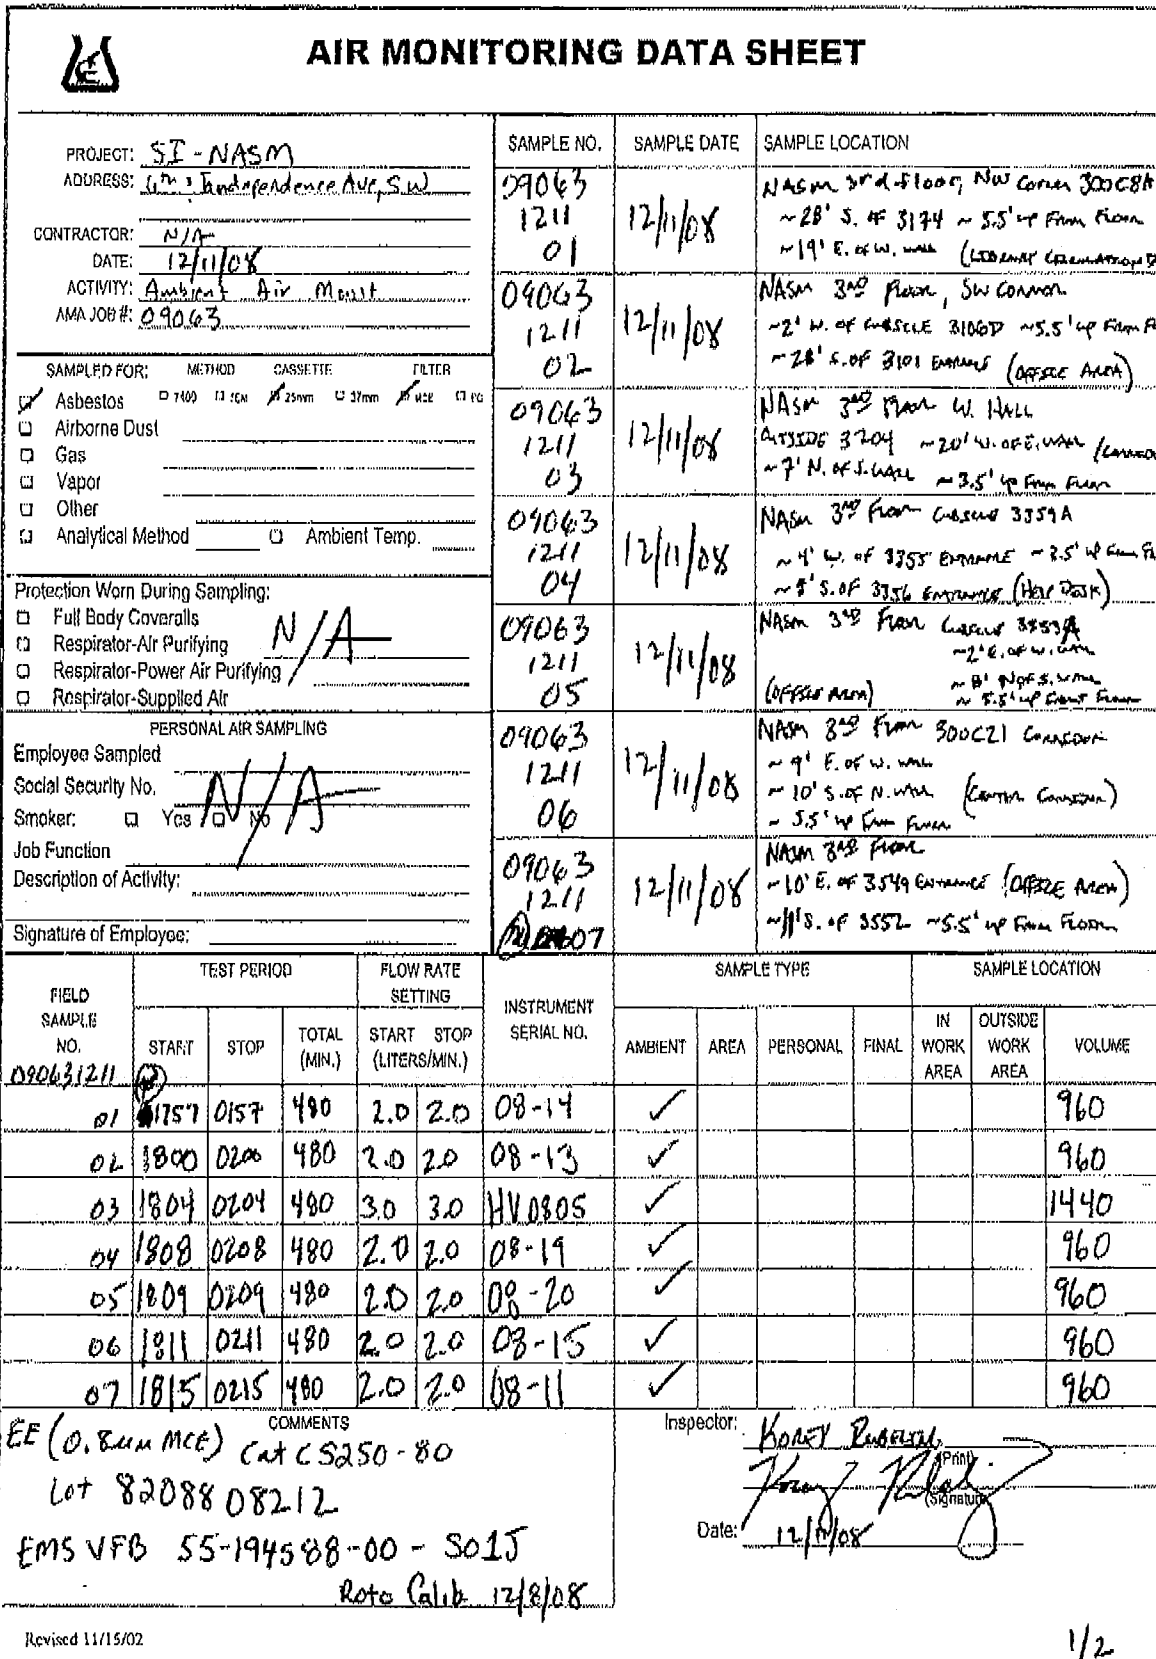 AIR MONITORING DATA SHEET
PROJECT: SI-NASM
ADDRESS: Independence Ave, SW
CONTRACTOR: N/A
DATE: 12/11/08
ACTIVITY: Ambient Air Monit
AMA JOB #: 09063
SAMPLED FOR: METHOD CASSETTE FILTER
Asbestos 7400 TEM 25mm 37mm MCE PC
Airborne Dust
Gas
Vapor
Other
Analytical Method Ambient Temp.
Protection Worn During Sampling:
Full Body Coveralls
Respirator-Air Purifying
Respirator-Power Air Purifying
Respirator-Supplied Air
N/A
PERSONAL AIR SAMPLING
Employee Sampled
Social Security No.
Smoker: Yes No
N/A
Job Function
Description of Activity:
Signature of Employee:
SAMPLE NO. SAMPLE DATE SAMPLE LOCATION
09063 1211 01 12/11/08 NASM 3rd floor, NW Corner 300C8A
~28' S. of 3174 ~5.5' up From Floor
~19' E. of W. wall
09063 1211 02 12/11/08 NASM 3rd Floor, SW Corner
~2' W. of Cubicle 3106D ~5.5' up From
~28' S. of 3101 Entrance (Office Area)
09063 1211 03 12/11/08 NASM 3rd Floor W. Hall
Outside 3204 ~20' W. of E. wall
~7' N. of S. wall ~3.5' up From Floor
09063 1211 04 12/11/08 NASM 3rd Floor Cubicle 3359A
~4' W. of 3355 Entrance ~3.5' up From
S. of 3356 Entrance (Help Desk)
09063 1211 05 12/11/08 NASM 3rd Floor Cubicle
~2' E. of W. wall
~8' N of S. wall
(Office Area) ~5.5' up From Floor
09063 1211 06 12/11/08 NASM 3rd Floor 300C21 Corridor
~9' E. of W. wall
~10' S. of N. wall (Center Corridor)
~5.5' up From Floor
09063 1211 07 12/11/08 NASM 3rd Floor
~10' E. of 3549 Entrance (Office Area)
~11' S. of 3552 ~5.5' up From Floor
FIELD SAMPLE NO. TEST PERIOD FLOW RATE SETTING INSTRUMENT SERIAL NO. SAMPLE TYPE SAMPLE LOCATION
START STOP TOTAL (MIN.) START STOP (LITERS/MIN.) AMBIENT AREA PERSONAL FINAL IN WORK AREA OUTSIDE WORK AREA VOLUME
090631211
01 1757 0157 480 2.0 2.0 08-14 ✓ 960
02 1800 0200 480 2.0 2.0 08-13 ✓ 960
03 1804 0204 480 3.0 3.0 HV0805 ✓ 1440
04 1808 0208 480 2.0 2.0 08-19 ✓ 960
05 1809 0209 480 2.0 2.0 08-20 ✓ 960
06 1811 0211 480 2.0 2.0 08-15 ✓ 960
07 1815 0215 480 2.0 2.0 08-11 ✓ 960
COMMENTS
EE (0.8um MCE) Cat CS250-80
Lot 8208808212
EMS VFB 55-194588-00-S01J
Roto Calib 12/8/08
Inspector: Korey
(Print)
(Signature)
Date: 12/11/08
Revised 11/15/02
1/2